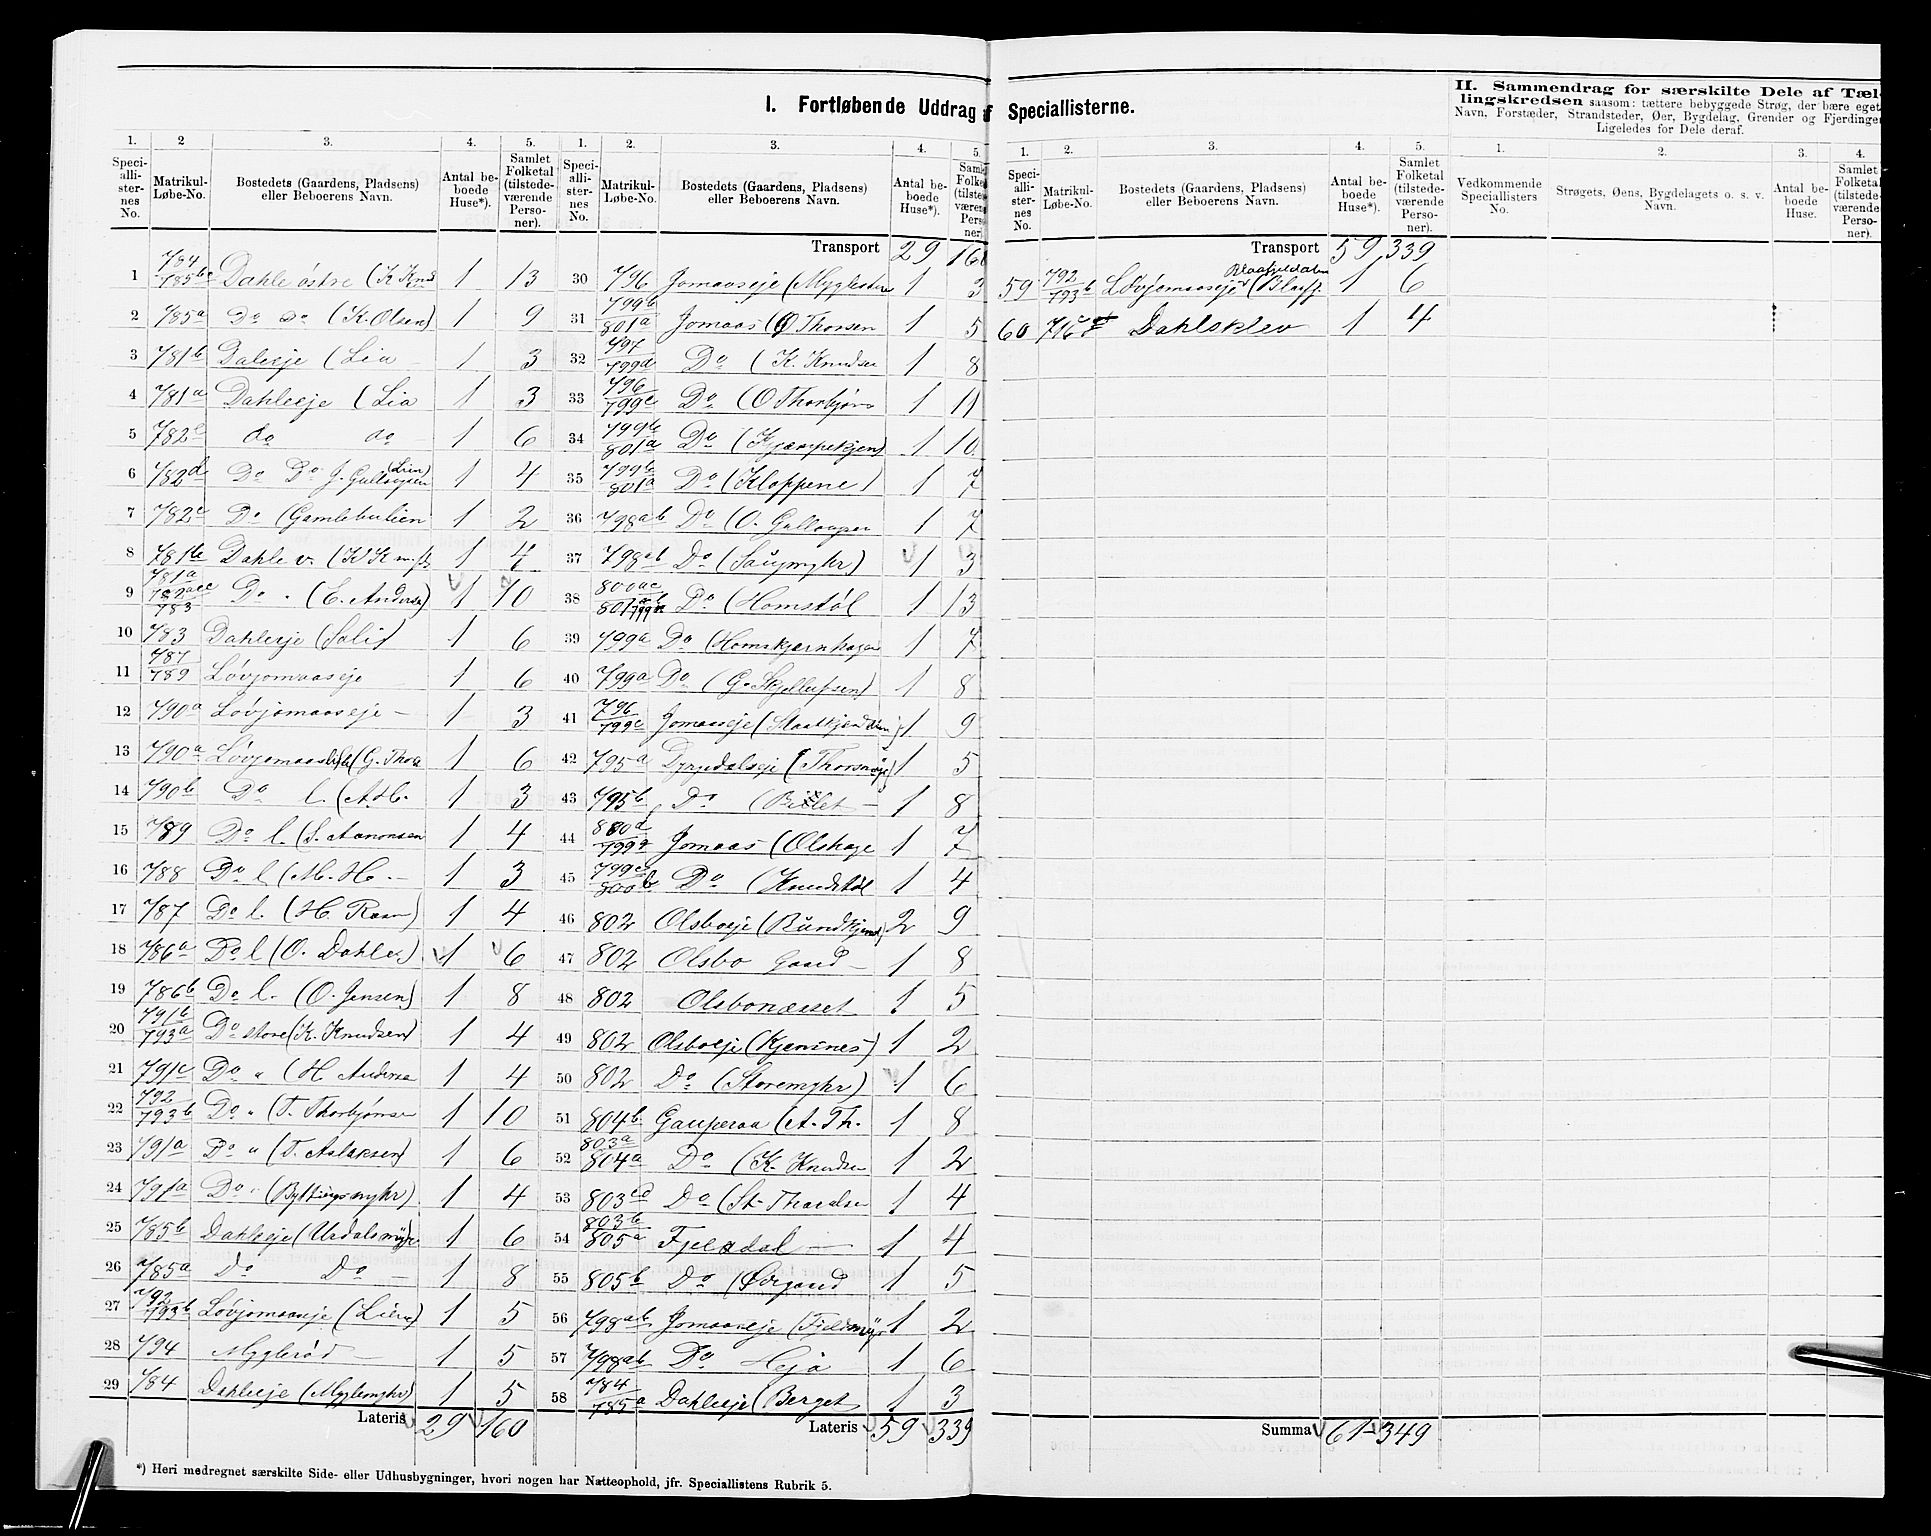 I. Fortløbende Uddrag af Speciallisterne.
1. 2 3. 4. 5.
Speciallisternes No. Matrikul-Løbe-No. Bostedets (Gaardens, Pladsens) eller Beboerens Navn. Antal beboede Huse*). Samlet Folketal (tilstedeværende Personer).
1 784/785bc Dahle östre (K Knud 1 13
2 785a Do Do (K. Olsen) 1 9
3 781b Daleeje (Lia 1 3
4 781a Dahleeje (Lia 1 3
5 782e do do 1 6
6 782d Do Do J. Gullovsen (Lien) 1 4
7 782c Do (Gamlebulien 1 2
8 781b Dahle v. (K K 1 4
9 781a/782ace/783 Do " (E. Anders 1 10
10 783 Dahleeje (Soli) 1 6
11 787/789 Løvjomaaseje 1 6
12 790a Løvjomaaseje – 1 3
13 790a Løvjomaas (G. Thoa 1 6
14 790b Do l. (A. H. 1 3
15 789 Do l. (S. Aanonsen 1 4
16 788 Do l (M. H. – 1 3
17 787 Do l. (H. Raan) 1 4
18 786a Do l (O. Dahle.) 1 6
19 786b Do l. (O. Jensen) 1 8
20 791b/793a Do store (K. Knudsen) 1 4
21 791c Do " (H Anderse 1 4
22 792/793b Do " (T. Thorbjønse 1 10
23 791a Do " (T. Aslaksen) 1 6
24 791a Do " (Byttingsmyhr) 1 4
25 785b Dahleeje (Urdalsmyhr 1 6
26 785a Do Do – 1 8
27 792/793b Løvjomaaseje (Liene) 1 5
28 794 Myglerød – 1 5
29 784 Dahleeje (Myglemyhr) 1 5
Lateris 29 160
*) Heri medregnet særskilte Side- eller Udhusbygninger, hvori nogen har Natteophold, jfr. Speciallistens Rubrik 5.
1. 2. 3. 4. 5.
Speciallisternes No. Matrikul-Løbe-No. Bostedets (Gaardens, Pladsens) eller Beboerens Navn. Antal beboede Huse*). Samlet Folketal (tilstedeværende Personer)
Transport 29 160
30 796 Jomaaseje (Myglestøen 1 3
31 799b/801a Jomaas (O Thorsen 1 5
32 797/799d Do (K. Knudsen 1 8
33 796/799c Do (O Thorbjørs 1 11
34 799b/801a Do (Kjæmpekjend 1 10
35 799b/801a Do (Kloppene) 1 7
36 798ab Do (O. Gullovsen 1 7
37 798ab Do (Saugmyhr) 1 3
38 800ac/801ab 799a Do (Homstøl 1 13
39 799a Do (Homskjærnhagen 1 7
40 799a Do (G. Skjellufsen) 1 8
41 796/799c Jomaaseje (Slaatkjenddalen) 1 9
42 795a Dyrydalseje (Thorsmyr) 1 5
43 795b Do (Billet – 1 8
44 800d/799a Jomaas (Olshage 1 7
45 799c/800b Do (Knudstøl 1 4
46 802 Olsboeje (Rundkjend) 2 9
47 802 Olsbo Gaard – 1 8
48 802 Olsbonæsset 1 5
49 802 Olsboeje (Kjensnes) 1 2
50 802 Do (Storemyhr) 1 6
51 804b Gauperaa (A. Th. 1 8
52 803a/804a Do (K. Knudsen 1 2
53 803c Do (St. Tharalsen 1 4
54 803b/805a Fjeldal – 1 4
55 805b Do (Øvrgaard 1 5
56 798ab Jomaaseje (Fjeldmyr 1 2
57 798ab Do Heja 1 6
58 784/785a Dahleeje (Berget 1 3
Lateris 59 339
1. 2. 3. 4. 5.
Speciallisternes No. Matrikul-Løbe-No. Bostedets (Gaardens, Pladsens) eller Beboerens Navn. Antal beboede Huse*). Samlet Folketal (tilstedeværende Personer).
Transport 59 339
59 792/793b Løvjomaaseje (Blaafj. Blaafjeldalen 1 6
60 716 Dahlsklev 1 4
Summa 61 349
II. Sammendrag for særskilte Dele af Tællingskredsen saasom: tættere bebyggede Strøg, der bære eget
Navn, Forstæder, Strandsteder, Øer, Bygdelag, Grender og Fjerdinger
Ligeledes for Dele deraf.
1. 2. 3. 4.
Vedkommende Speciallisters No. Strøgets, Øens, Bygdelagets o. s. v. Navn. Antal beboede Huse. Samlet Folketal (tilstedeværende Personer)